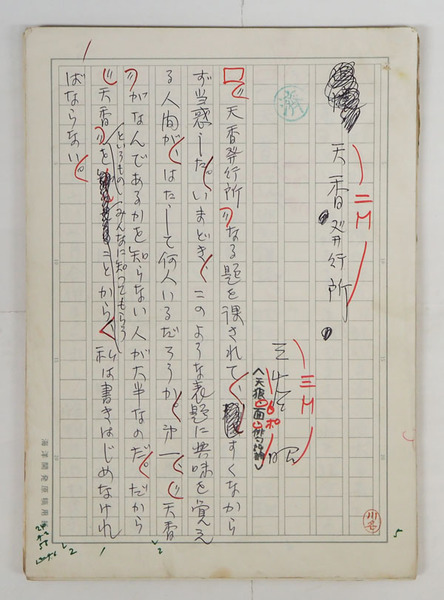 天香発行所
二H
三H
6ポ
済
「天香発行所」なる題を課されて、すくなから
ず当惑した。いまどき、このような表題に興味を覚え
る人間が、はたして何人いるだろうか、第一、「天香」
がなんであるかを知らない人が大半なのだ。だから
というものを、みんなに知ってもらう
「天香」を ことから、私は書きはじめなけれ
ばならない。
海洋開発原稿用紙
1
2
1
2
5